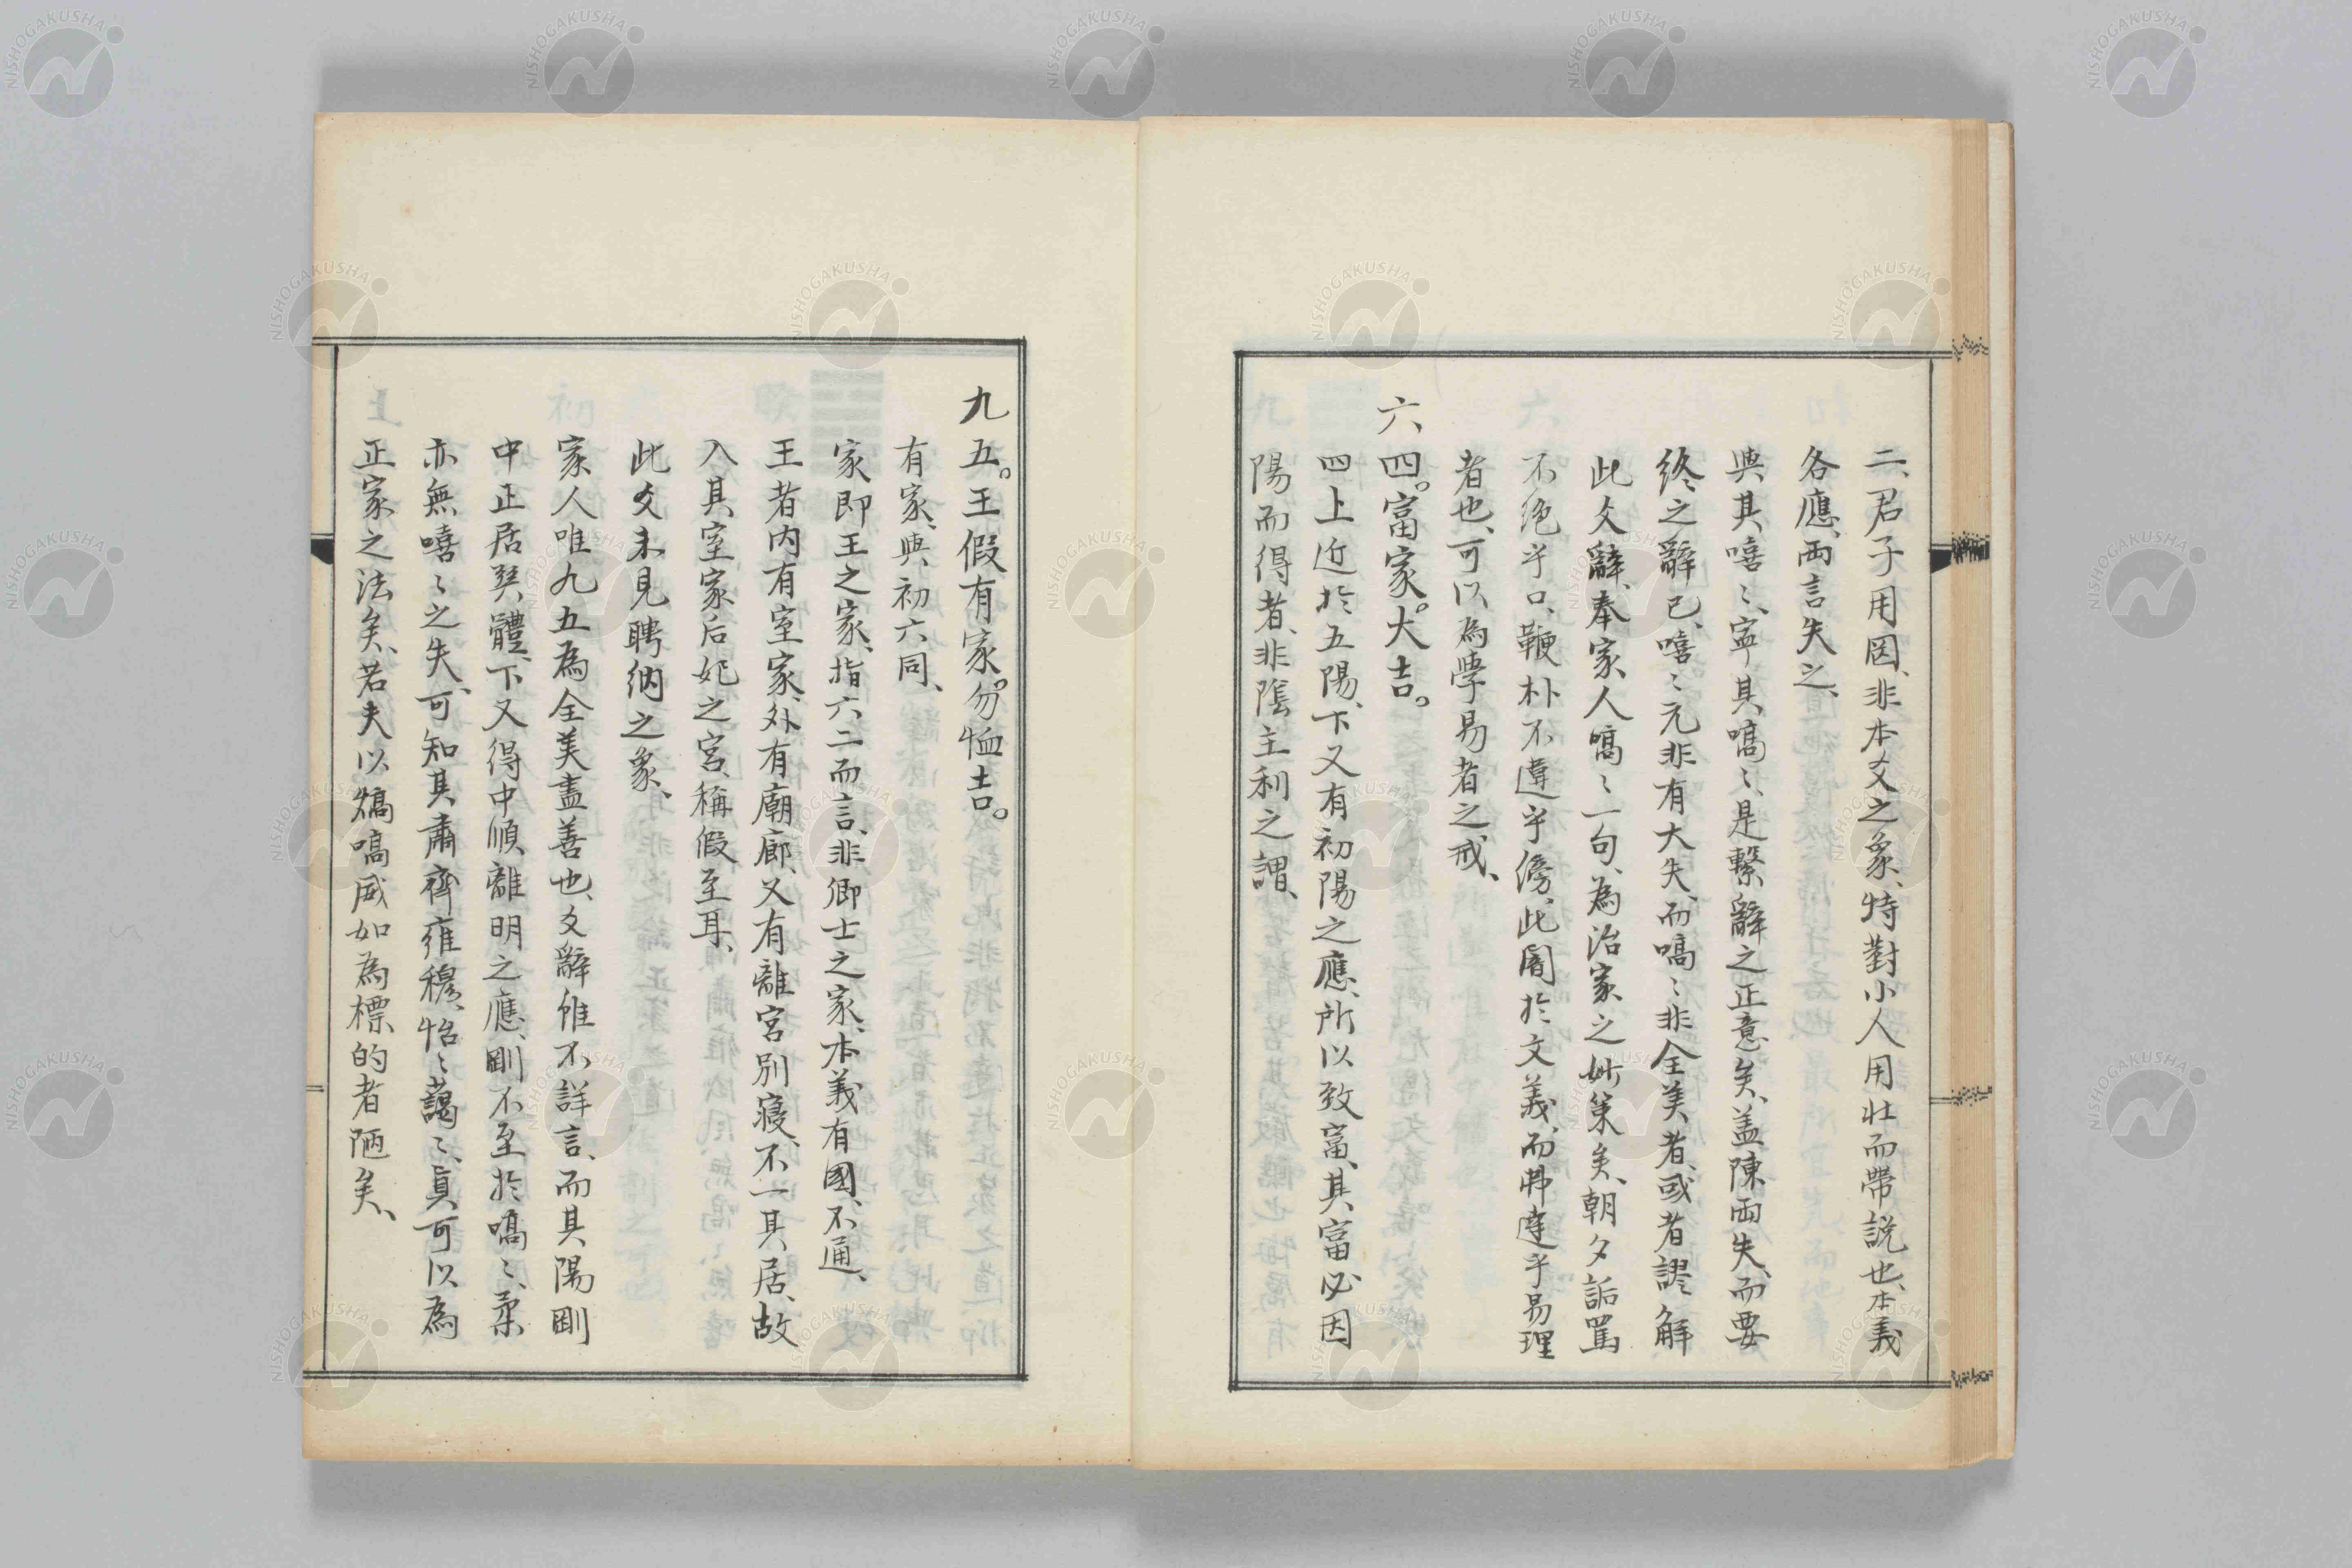 二、君子用罔、非本爻之象、特對小人用壯而帶説也、本義
各應、兩言失之、
與其嘻〻、寧其嗃〻、是繫辭之正意矣、盖陳兩失、而要
終之辭已、嘻〻元非有大失、而嗃〻非全美者、或者謬解
此爻辭、奉家人嗃〻一句、為治家之妙策矣、朝夕詬罵
不絶乎口、鞭朴不違乎傍、此闇於文義、而弗達乎易理
者也、可以為學易者之戒、
六四。富家。大吉。
四上近於五陽、下又有初陽之應、所以致富、其富必因
陽而得者、非陰主利之謂、
九五。王假有家。勿恤吉。
有家、與初六同、
家即王之家、指六二而言、非卿士之家、本義有國、不通、
王者內有室家、外有廟廊、又有離宮別寢、不一其居、故
入其室家后妃之宮、稱假至耳、
此爻未見聘納之象、
家人唯九五為全美盡善也、爻辭雖不詳言、而其陽剛
中正居巽體、下又得中順離明之應、剛不至於嗃〻、柔
亦無嘻〻之失、可知其肅齊雍穆、怡〻藹〻、真可以為
正家之法矣、若夫以熇嗃威如為標的者陋矣、
NISHOGAKUSHA